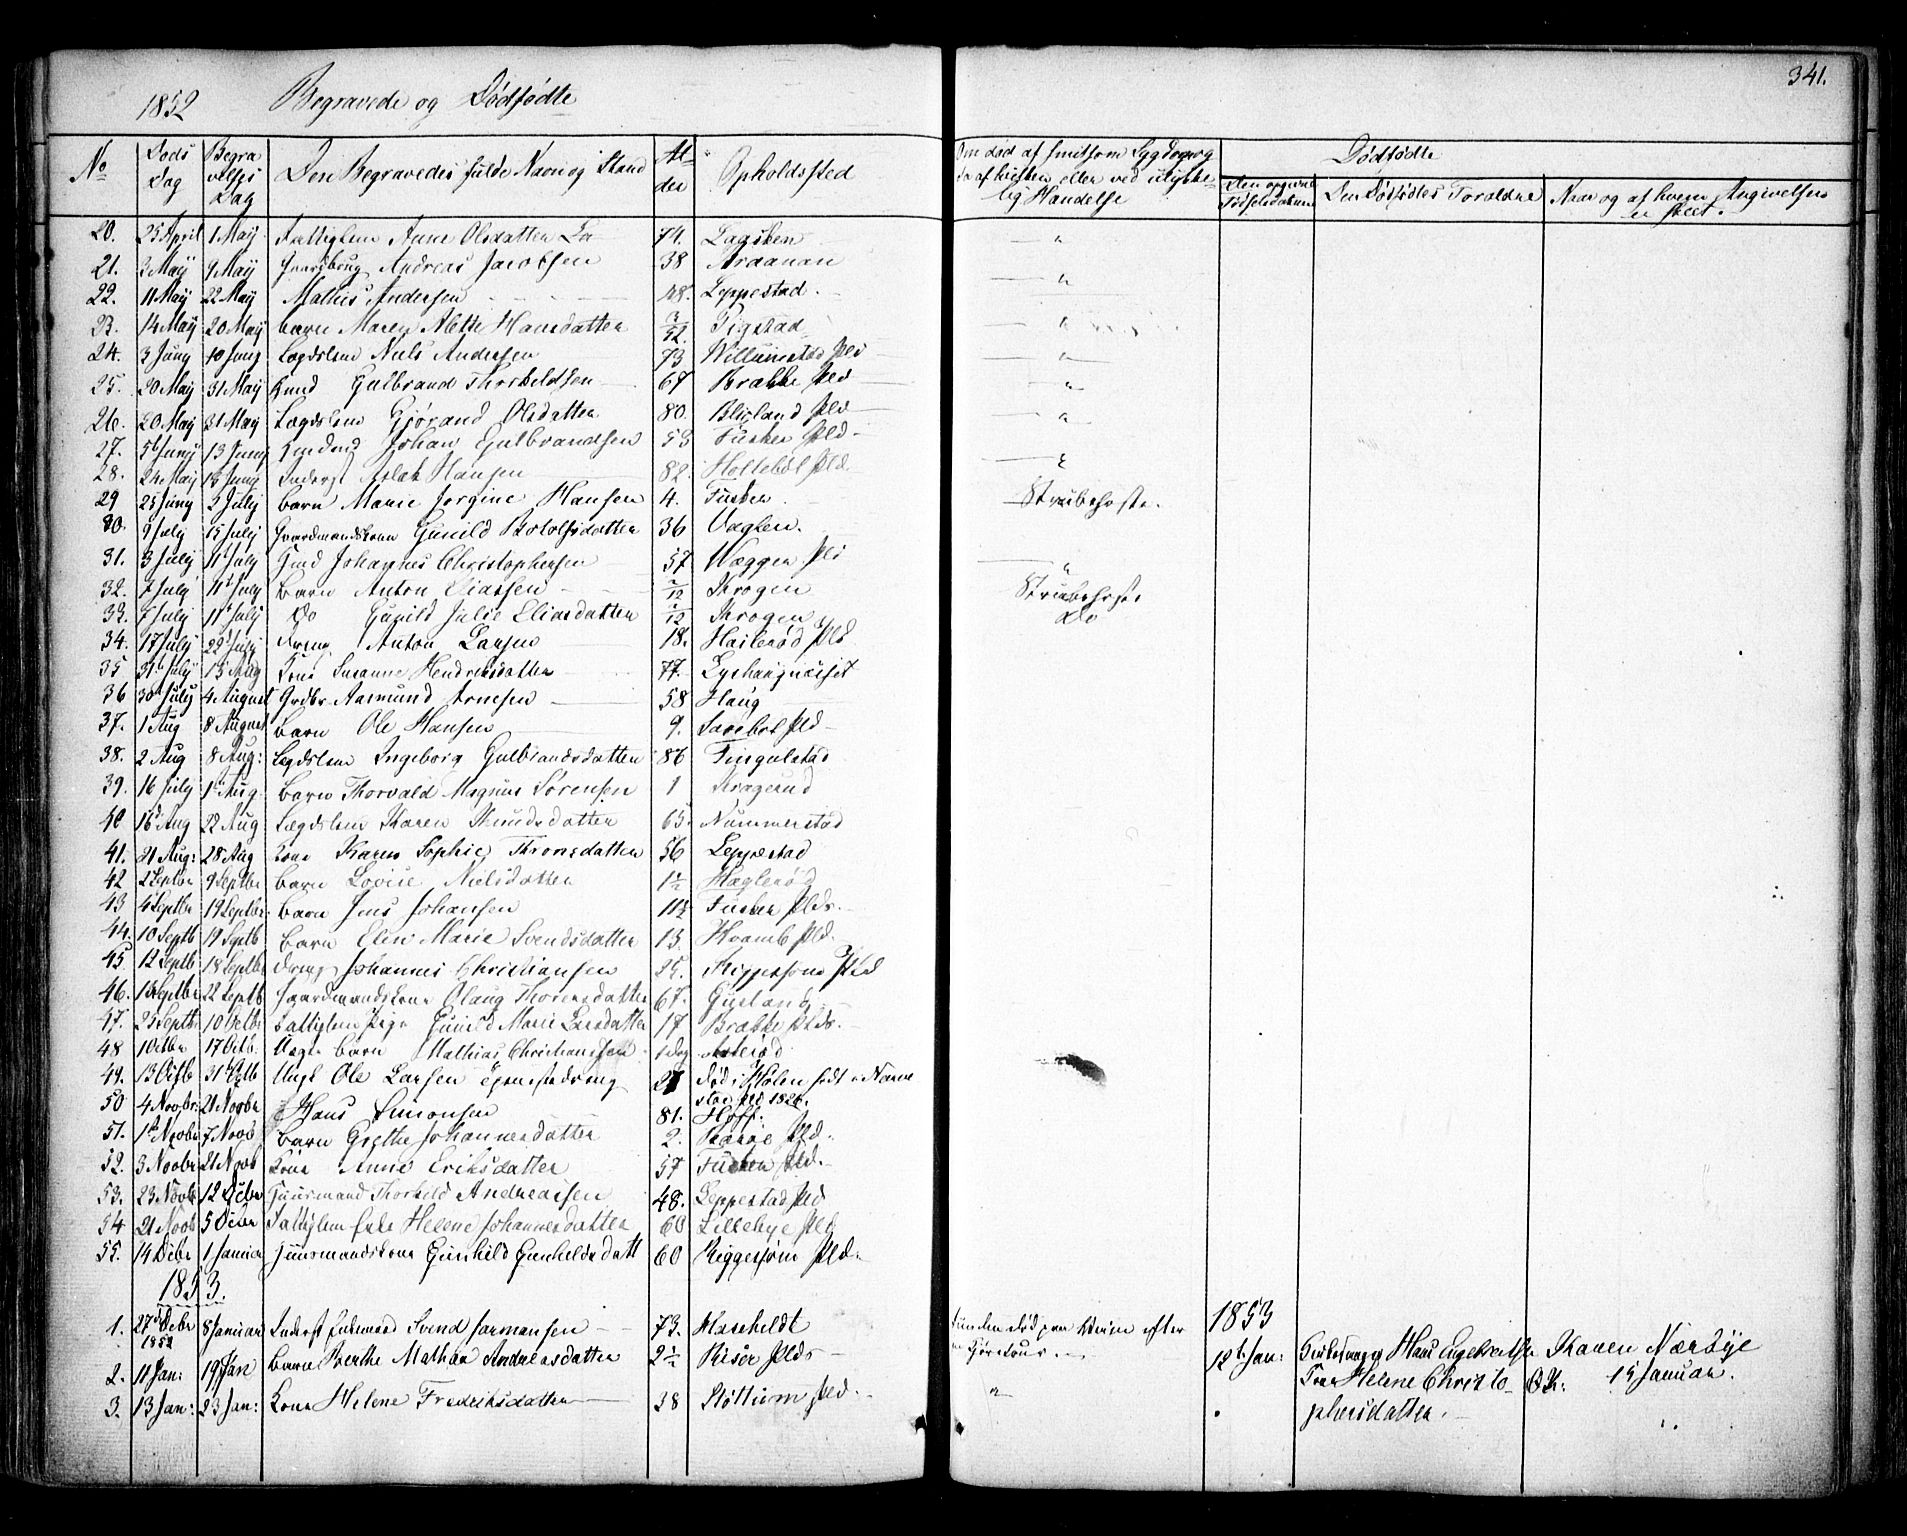 341.
1852 Begravede og Dødfødte
No Døds Dag Begravelses Dag Den Begravedes fulde Navn og Stand Alder Opholdssted Om død af smitsom Sygdom og af hvilken eller ved ulykkelig Hændelse Dødfødte
Den opgivne Fødselsdatum Den Dødfødtes Forældre Naar og af hvem Angivelsen er skeet.
20. 25 April 1 May Fattiglem Anne Olsdatter 74. Lagsken "
21. 3 May 9 May Andreas Jacobsen 38 "
22. 11 May 22 May Mathis Andersen 48. Leppestad. "
23. 14 May 20 May barn Maren Alette Hansdatter 3/52. Tigstad "
24. 3 Juny 10 Juny Lægdslem Niels Andersen 73 Willumstad Pld "
25. 20 May 31 May Gulbrand Thorkeldsen 67 Brække Pld "
26. 20 May 31 May Lægdslem Gjørand Olsdatter 80. Blixland Pld "
27. 5 Juny 13 Juny Johan Gulbrandsen 53 Fusken Pld "
28. 24 May 13 Juny Inderst Aslak Hansen 82. Holtebøl Pld
29 25 Juny 3 July barn Maren Jorgine Hansen 4. Fusken Strubehoste.
30. 9 July 15 July Gaardmandskone Gunild Botolfsdatter 36 Vagten.
31. 3 July 11 July Johannes Christophersen 57 Wæggen Pld "
32. 7 July 11 July Barn Anton Eliassen /12 Krogen Strubehoste
33. 7 July 11 July Do Gunild Julie Eliasdatter /12 Krogen Do
34. 17 July 22 July dreng Anton Larsen 18. Haslerød Pld
35 31 July 15 Aug Kone Susanne Hendriksdatter 77.
36 30 July 4 August Grdbr Aasmund Arnesen 58 Haug
37. 1 Aug 8 August Barn Ole Hansen 9. Sarebøl Pld
38. 2 Aug 8 Aug: Lægdslem Ingeborg Gulbrandsdatter 86 Fingulstad
39. 16 July 1 Aug barn Thorvald Magnus Sørensen 1 Kragerud
40 16 Aug 22 Aug Lægdslem Karen Knudsdatter 65 Nummerstad
41. 21 Aug: 28 Aug Kone Karen Sophie Thronsdatter 56 Leppestad
42 2 Septbr 9 Septbr barn Lovise Nielsdatter 1½ Haglerød
43 4 Septbr 19 Septbr barn Jens Johansen 11½ Fusken Plds.
44. 10 Septb 19 Septb barn Elen Marie Svendsdatter 13. Kvamb Pld.
45 12 Septb 18 Septbr dreng Johannes Christiansen 25. Kiggesjøne Pld
46. 16 Septbr 22 Septb Gaardmandskone Olaug Thoresdatter 67. Gusland
47. 25 Septb 10 Octbr Fattiglem Pige Gunild Marie Larsdatter 17 Brække Plds.
48 1 Octbr 17 Octb. Uægte barn Mathias Christianssen 1 Dag
49. 13 Octb 31 Octb Ungk Ole Larsen Tjenestedreng 27 død i Hølen født i Nærve
stad Pld 1826.
50 4 Novbr. 21 Novbr Hans Simonsen 81. Hoff.
51. 1 Novbr 7 Novb barn Grethe Johannesdatter 2. Pld.
52. 3 Novbr 21 Novb Kone Anne Eriksdatter 57 Fusken Pld.
53. 23 Novb 12 Decbr Huusmand Thorkild Andreassen 48. Leppestad Pld
54 21 Novb 5 Decbr Fattiglem Enke Helene Johannesdatter 60 Lillebye Pld
55. 14 Decbr 1 Januar Huusmandskone Gunhild Gunhildsdatt 60 Kiggesjøm Pld.
1853.
1. 27 Decbr 1852 8 Januar Inderst Enkemand Svend Jarmansen 73. Haseheldt Funden død paa Veien efter
2. 11 Jan: 19 Jan Barn Berthe Mathea Andreasdatter 2½ Riser Plds
3. 13 Jan: 23 Jan: Kone Helene Fredriksdatter 38 Støttum Pld. "
1853
12 Jan: Hans Engebretse
Helene Christo-
phersdatter.
Karen Nærbye
15 Januar.